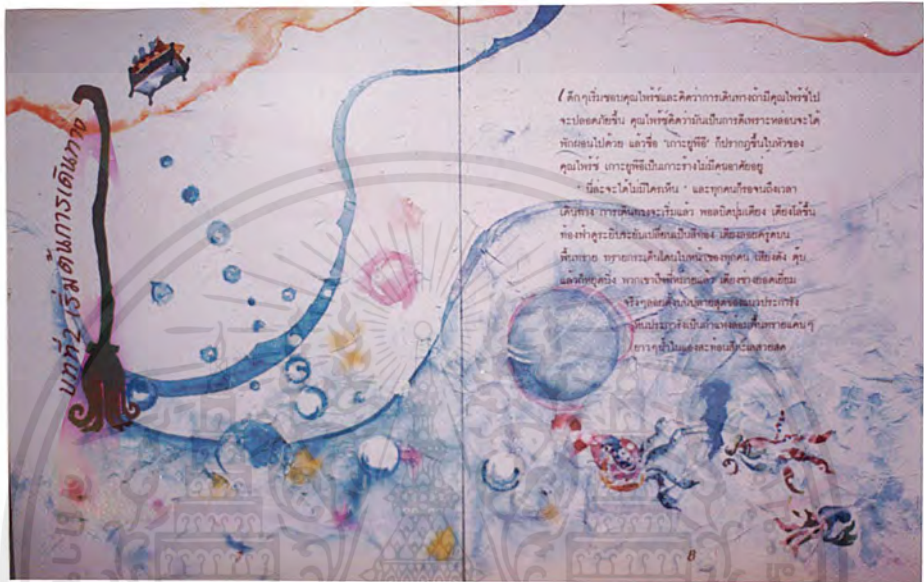 บทที่2 เริ่มต้นการเดินทาง
เด็กๆเริ่มชอบคุณไพร์ซ์และคิดว่าการเดินทางถ้ามีคุณไพร์ซ์ไป
จะปลอดภัยขึ้น คุณไพร์ซ์คิดว่ามันเป็นการดีเพราะหล่อนจะได้
พักผ่อนไปด้วย แล้วชื่อ "เกาะยูพีอี" ก็ปรากฏขึ้นในหัวของ
คุณไพร์ซ์ เกาะยูพีอีเป็นเกาะร้างไม่มีคนอาศัยอยู่
" นี่ล่ะจะได้ไม่มีใครเห็น " และทุกคนก็รอจนถึงเวลา
เดินทาง การเดินทางจะเริ่มแล้ว พอลบิดปุ่มเตียง เตียงโล้ขึ้น
ท้องฟ้าดูระยิบระยับเปลี่ยนเป็นสีท้อง เตียงลอยครูดบน
พื้นทราย ทรายกระเด็นโดนใบหน้าของทุกคน เสียงดัง ตุ้บ
แล้วก็หยุดนิ่ง พวกเขาถึงที่หมายแล้ว เตียงช่างยอดเยี่ยม
จริงๆลอยลงบนปลายสุดของแนวปะการัง
หินปะการังเป็นกำแพงล้อมพื้นทรายแคบๆ
ยาวๆน้ำในแอ่งสะท้อนสีสวยสด
8